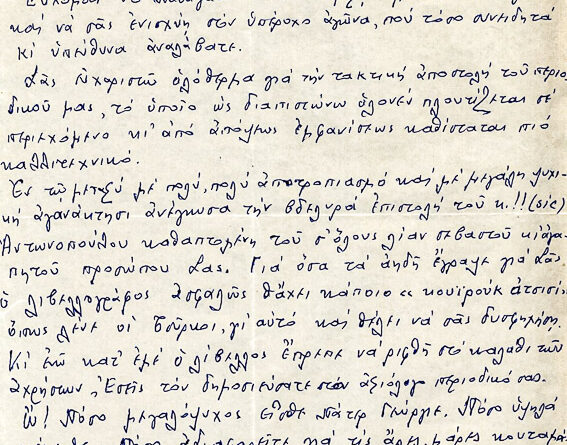 καὶ νὰ σᾶς ἐνισχύῃ στὸν ὑπέροχο ἀγῶνα, ποὺ τόσο συνειδητὰ
κι ὑπεύθυνα ἀναλάβατε.
Σᾶς εὐχαριστῶ ὁλόθερμα γιὰ τὴν τακτικὴ ἀποστολὴ τοῦ περιο
δικοῦ μας, τὸ ὁποῖο ὡς διαπιστώνω ὁλονὲν πλουτίζεται σὲ
περιεχόμενο κι' ἀπὸ ἀπόψεως ἐμφανίσεως καθίσταται πιὸ
καλλιτεχνικό.
Ἐν τῷ μεταξὺ μὲ πολύ, πολὺ ἀποτροπιασμὸ καὶ μὲ μεγάλη ψυχι-
κὴ ἀγανάκτησι ἀνέγνωσα τὴν βδελυρὰ ἐπιστολὴ τοῦ κ.!! (sic)
Ἀντωνοπούλου καθαπτομένη τοῦ σ' ὅλους λίαν σεβαστοῦ κι ἀγα-
πητοῦ προσώπου Σας. Γιὰ ὅσα τὰ ἀηδῆ ἔγραψε γιὰ Σᾶς
ὁ λιβελλογράφος ἀσφαλῶς θἄχει κάποιο «κουϊροὺκ ἀτσισί»
ὅπως λένε οἱ Τοῦρκοι, γι αὐτὸ καὶ θέλει νὰ σᾶς δυσφημήσῃ.
Κι ἐνῶ κατ' ἐμὲ ὁ λίβελλος ἔπρεπε νὰ ριφθῇ στὸ καλάθι τῶν
ἀχρήστων, Ἐσεῖς τὸν δημοσιεύσατε στὸ ἀξιόλογο περιοδικό σας.
Ὤ! Πόσο μεγαλόψυχος εἶσθε Πάτερ Γεώργιε. Πόσο ὑψηλὰ